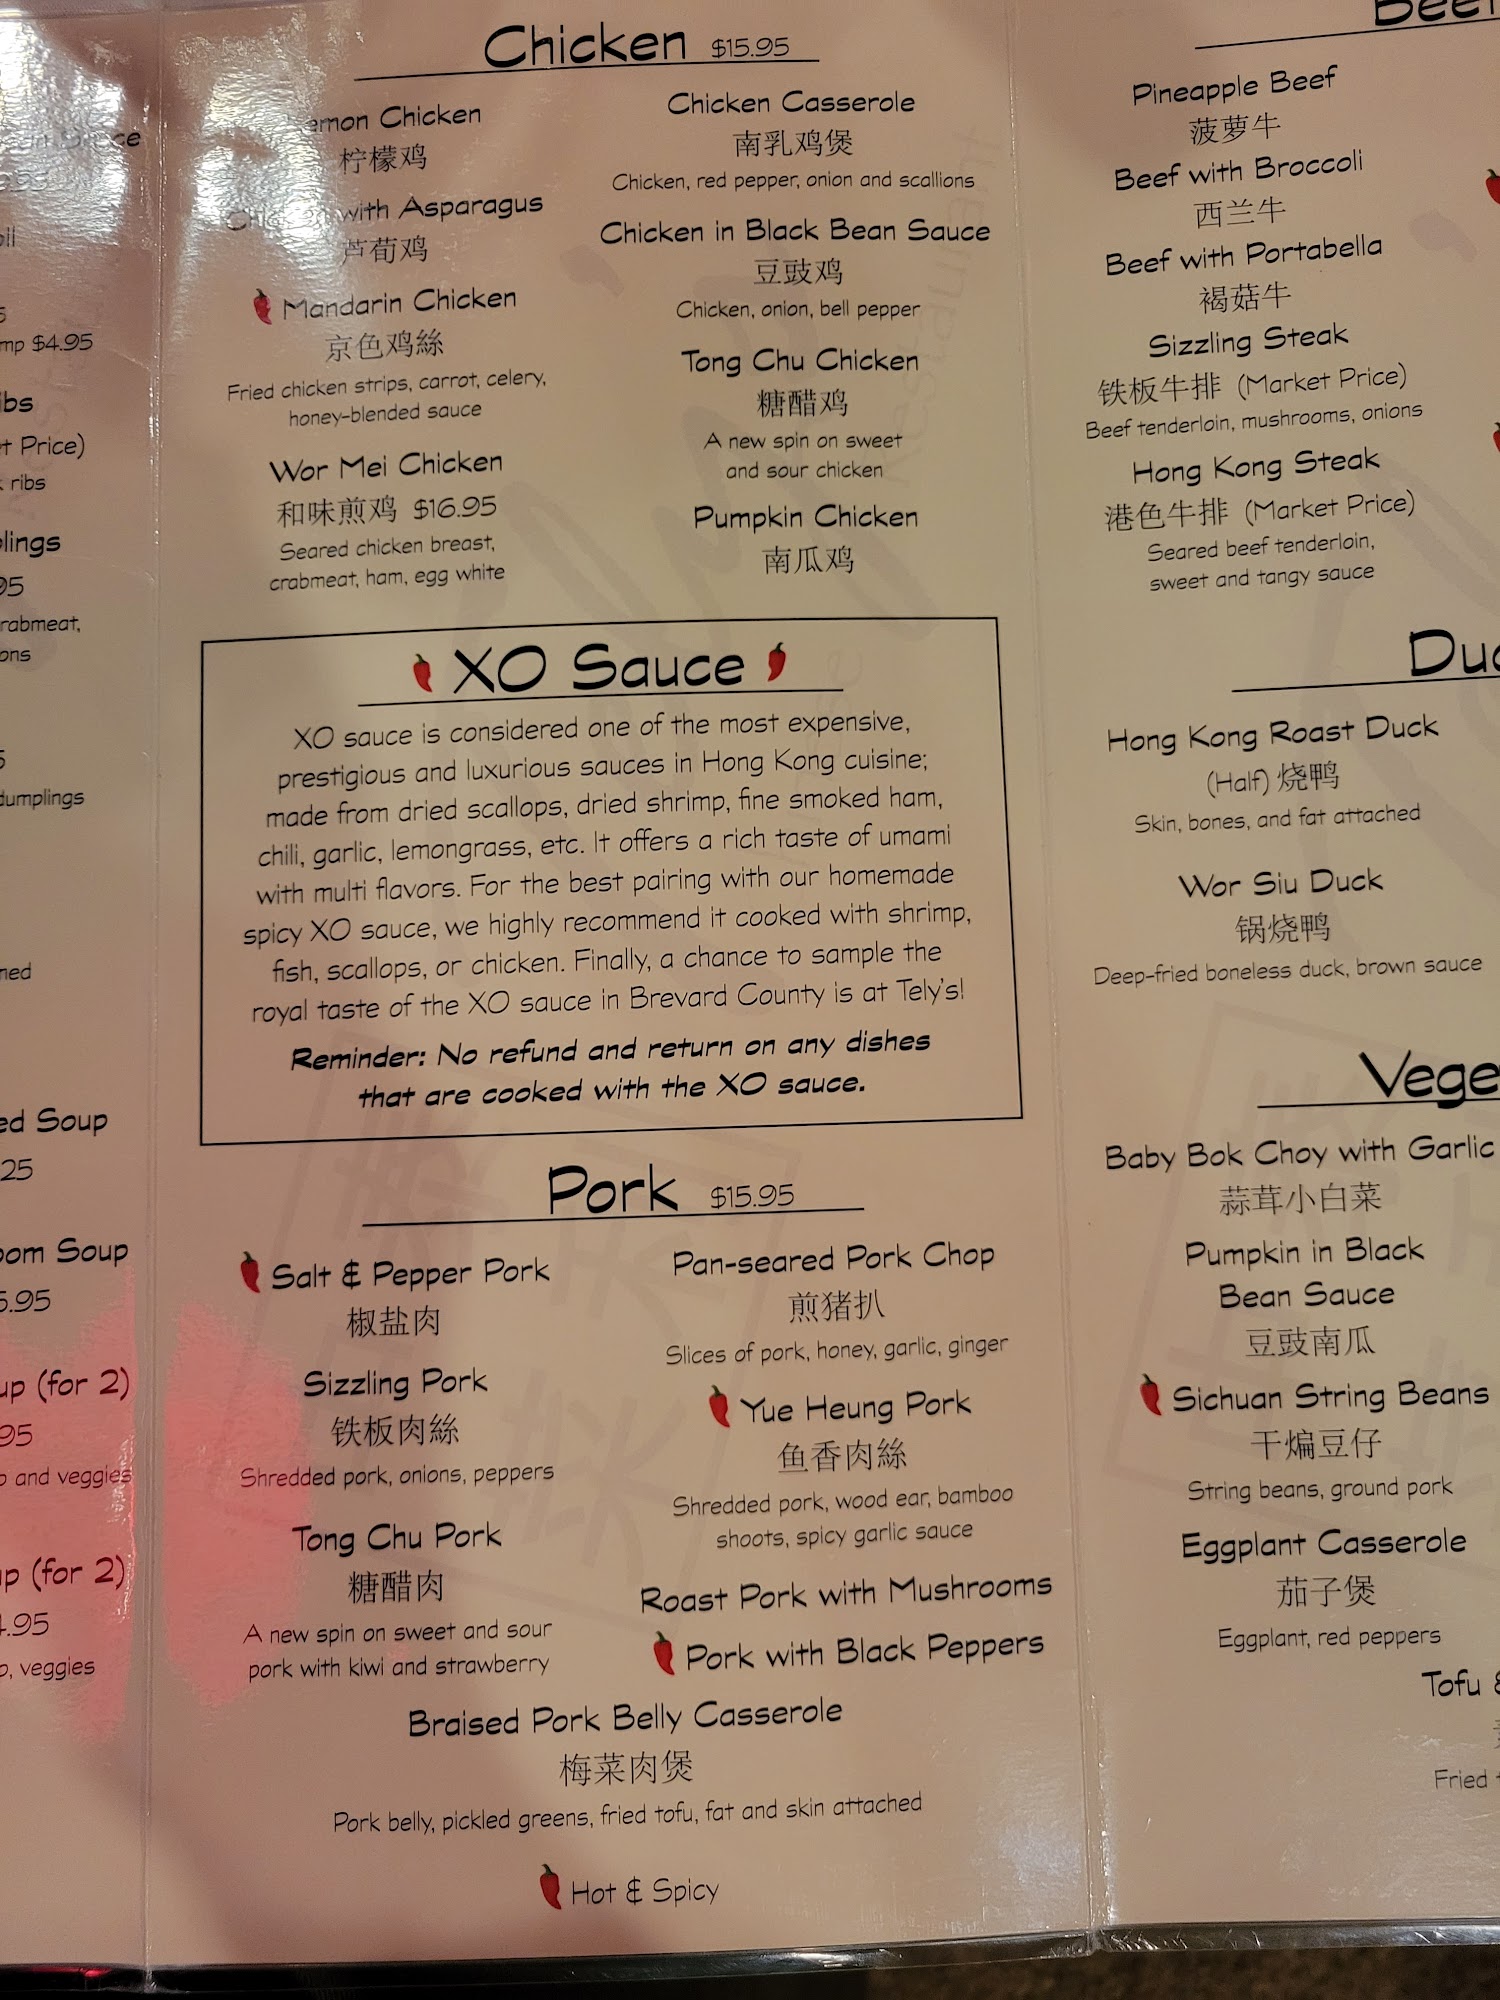 Sauce
mp $4.95
Price)
ribs
95
dumplings
Soup
25
Soup
5.95
(for 2)
95
and veggies
(for 2)
veggies
Chicken $15.95
Chicken
柠檬鸡
with Asparagus
芦荀鸡
Mandarin Chicken
京色鸡絲
Fried chicken strips, carrot, celery,
honey-blended sauce
Wor Mei Chicken
和味煎鸡 $16.95
Seared chicken breast,
crabmeat, ham, egg white
Chicken Casserole
南乳鸡煲
Chicken, red pepper, onion and scallions
Chicken in Black Bean Sauce
豆豉鸡
Chicken, onion, bell pepper
Tong Chu Chicken
糖醋鸡
A new spin on sweet
and sour chicken
Pumpkin Chicken
南瓜鸡
XO Sauce
XO sauce is considered one of the most expensive,
prestigious and luxurious sauces in Hong Kong cuisine;
made from dried scallops, dried shrimp, fine smoked ham,
chili, garlic, lemongrass, etc. It offers a rich taste of umami
with multi flavors. For the best pairing with our homemade
spicy XO sauce, we highly recommend it cooked with shrimp,
fish, scallops, or chicken. Finally, a chance to sample the
royal taste of the XO sauce in Brevard County is at Tely's!
Reminder: No refund and return on any dishes
that are cooked with the XO sauce.
Pork $15.95
Salt & Pepper Pork
椒盐肉
Sizzling Pork
铁板肉絲
Shredded pork, onions, peppers
Tong Chu Pork
糖醋肉
A new spin on sweet and sour
pork with kiwi and strawberry
Pan-seared Pork Chop
煎猪扒
Slices of pork, honey, garlic, ginger
Yue Heung Pork
鱼香肉絲
Shredded pork, wood ear, bamboo
shoots, spicy garlic sauce
Roast Pork with Mushrooms
Pork with Black Peppers
Braised Pork Belly Casserole
梅菜肉煲
Pork belly, pickled greens, fried tofu, fat and skin attached
Hot & Spicy
Beef
Pineapple Beef
菠萝牛
Beef with Broccoli
西兰牛
Beef with Portabella
褐菇牛
Sizzling Steak
铁板牛排 (Market Price)
Beef tenderloin, mushrooms, onions
Hong Kong Steak
港色牛排 (Market Price)
Seared beef tenderloin,
sweet and tangy sauce
Duc
Hong Kong Roast Duck
(Half) 烧鸭
Skin, bones, and fat attached
Wor Siu Duck
锅烧鸭
Deep-fried boneless duck, brown sauce
Vege
Baby Bok Choy with Garlic
蒜茸小白菜
Pumpkin in Black
Bean Sauce
豆豉南瓜
Sichuan String Beans
干煸豆仔
String beans, ground pork
Eggplant Casserole
茄子煲
Eggplant, red peppers
Tofu &
Fried